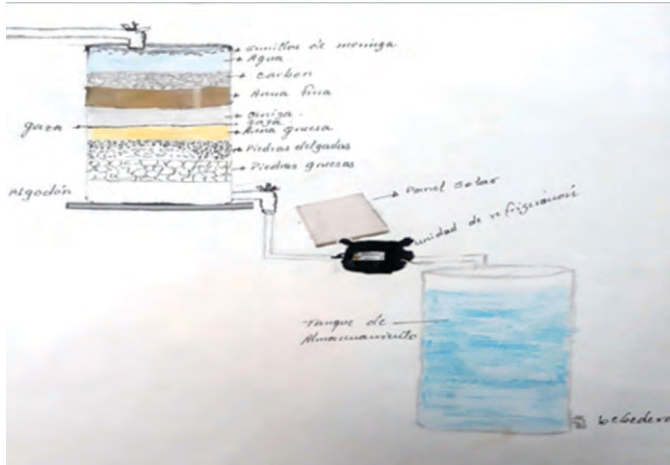 semillas de moringa
Agua
carbon
Arena fina
ceniza
gaza
gaza
Arena gruesa
Piedras delgadas
Piedras gruesas
Algodón
Panel solar
unidad de refrigeración
Tanque de
Almacenamiento
bebedero